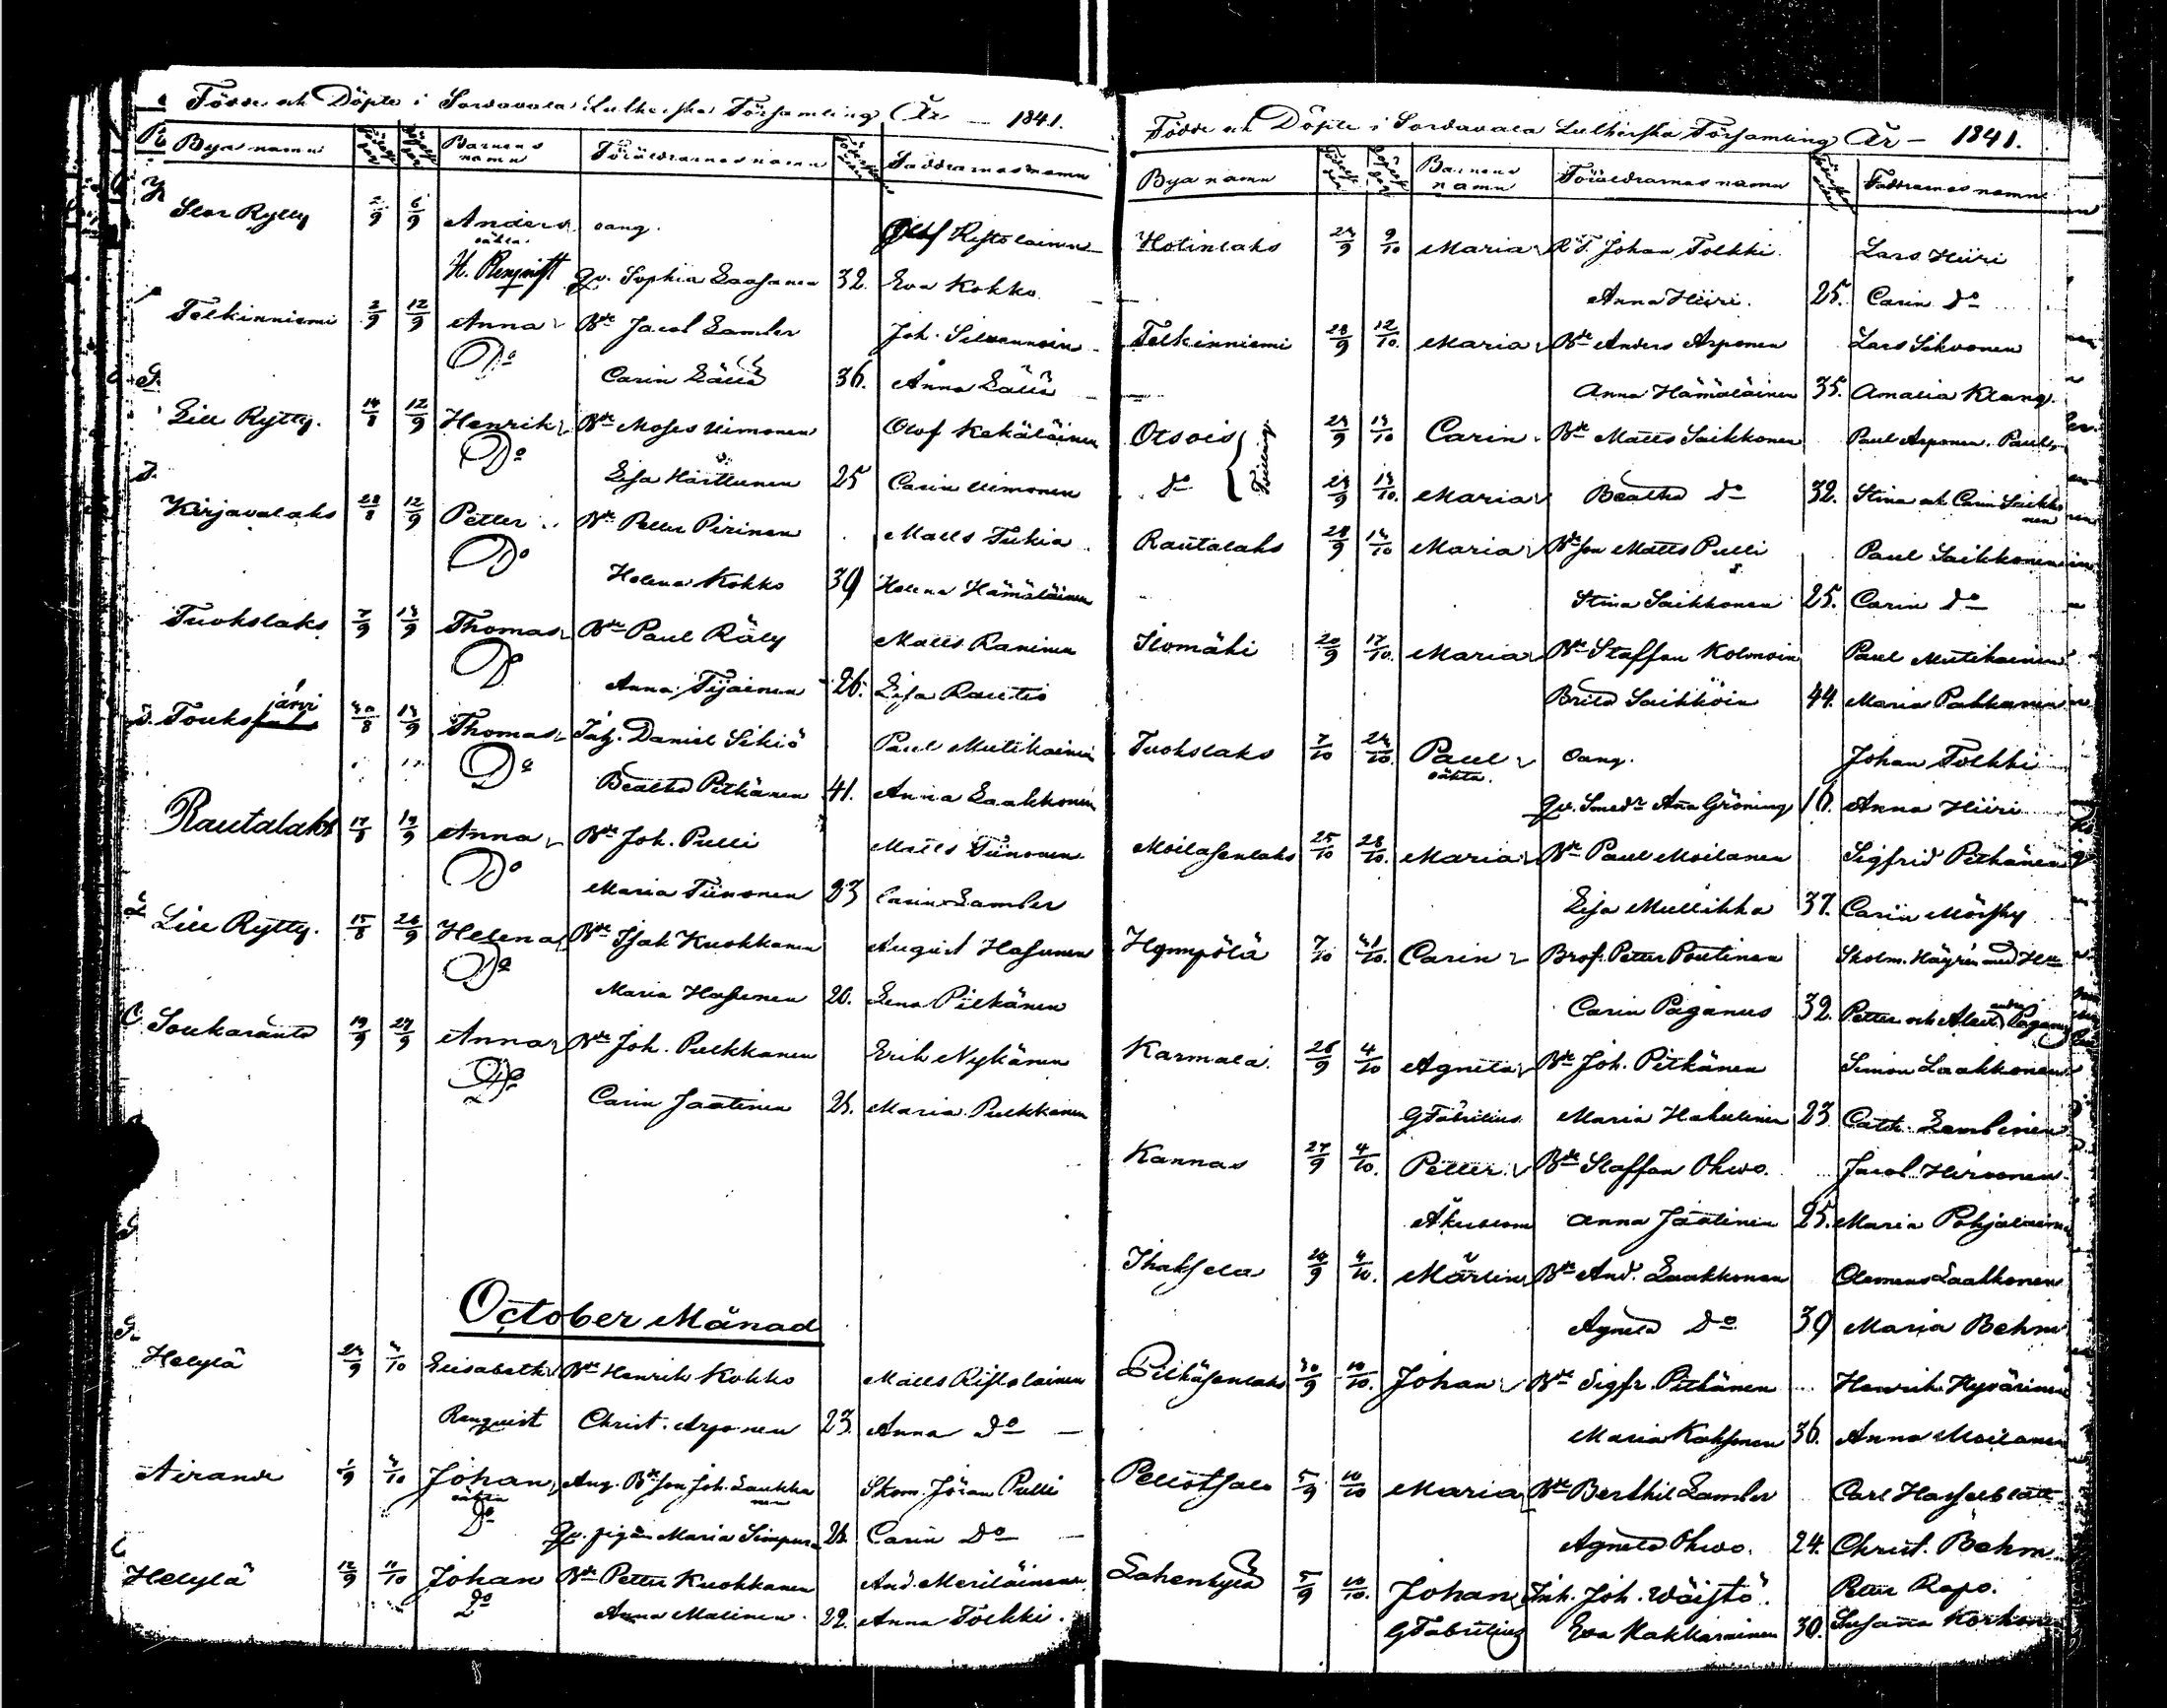 Födde och Döpte i Sordavala Lutherska Församling År — 1841.
Byas namn Barnens namn Föräldrarnas namn Faddrarnas namn
Stor Rytty 2/9 6/9 Anders oang. Olof Ristolainen
oäkta.
H. Renqvist Qv. Sophia Laasanen 32. Eva Kokko
Telkinniemi 2/9 12/9 Anna Bde Jacob Lamber Joh. Silvennoin
Do Carin Lällä 36. Anna Lällä
Lill Rytty. 14/8 12/9 Henrik Bde Moses Uimonen Olof Kekäläinen
Do Lisa Härttunen 25 Carin Uimonen
Kirjavalaks 28/8 12/9 Petter Bde Petter Pirinen Matts Tukia
Do Helena Kokko 39 Helena Hämäläinen
Tuokslaks 7/9 13/9 Thomas Bde Paul Räty Matts Raninen
Do Anna Tijainen 26. Lisa Rautio
järvi
Touks 30/8 13/9 Thomas Inh. Daniel Sikiö Paul Mutikainen
Do Beatha Pitkänen 41. Anna Laakkonen
Rautalaks 17/8 19/9 Anna Bde Joh. Pulli Matts Tiinonen
Do Maria Tiinonen 23 Carin Lamber
Lill Rytty. 15/8 26/9 Helena Bde Isak Kuokkanen August Hasunen
Do Maria Hasunen 20. Lena Pitkänen
Soukaranta 19/9 27/9 Anna Bde Joh. Pulkkanen Erik Nykänen
Do Carin Jaatinen 26. Maria Pulkkanen
October Månad
Helylä 24/9 3/10 Elisabeth Bde Henrik Kokko Matts Ristolainen
Renquist Christ. Arponen 23. Anna Do —
Airanne 1/9 3/10 Johan Ang. Bde son Joh. Laukkanen Skom. Jöran Pulli
oäkta
Do Qv. pigan Maria Simpura 26. Carin Do —
Helylä 12/9 11/10 Johan Bde Petter Kuokkanen And. Meriläinen
Do Anna Malinen. 22. Anna Tolkki.
Födde och Döpte i Sordavala Lutherska Församling År — 1841.
Bya namn Barnens namn Föräldrarnas namn Faddrarnas namn
Hotinlaks 24/9 9/10 Maria Johan Tolkki. Lars Hiiri
Anna Hiiri. 25. Carin Do
Telkinniemi 28/9 12/10. Maria Bde Anders Arponen Lars Sihvonen
Anna Hämäläinen 35. Amalia Klang.
Otsois 24/9 13/10 Carin Bde Matts Saikkonen Paul Arponen. Paul
Do Tvilling 24/9 13/10. Maria Beatha Do 32. Stina och Carin Saikkonen
Rautalaks 28/9 14/10 Maria Bde son Matts Pulli Paul Saikkonen
Stina Saikkonen 25. Carin Do
Ilomäki 20/9 17/10. Maria Bde Staffan Kolmoin Paul Mutikainen
Brita Saikköin 44. Maria Pakkanen
Tuokslaks 7/10 24/10. Paul Oang. Johan Tolkki
oäkta.
Qv. Smeds Anna Gröning 16. Anna Hiiri
Moilasenlaks 25/10 28/10. Maria Bde Paul Moilanen Sigfrid Pitkänen
Lisa Mullikka 37. Carin Mörsky
Hympölä 7/10 31/10. Carin Brof. Petter Poutinen Skolm. Häyrén med Hu
Carin Paganus 32. Petter och Paganus
Karmala 26/9 4/10 Agneta Bde Joh. Pitkänen Simon Laakkonen
G Fabritius Maria Hakulinen 23 Cath. Lembinen
Kannas 27/9 4/10. Petter. Bde Staffan Ohvo. Jacob Hirvonen
Åkerblom Anna Jaatinen 25. Maria Pohjalainen
Ihaksela 20/9 4/10. Märtin Bde And. Laakkonen Clemens Laakkonen
Agneta Do 39 Maria Behm
Pitkäsenlaks 30/9 10/10. Johan Bde Sigfr. Pitkänen Henrik Hyvärinen
Maria Kaksonen 36. Anna Moilanen
Pellotsalo 5/9 10/10 Maria Bde Berthil Lamber Carl Hasselblatt
Agneta Ohvo. 24. Christ. Behm
Lahenkylä 5/9 10/10. Johan Inh. Joh. Wäistö. Petter Rapo.
G Fabritius Eva Kakkarainen 30. Susanna Korhonen